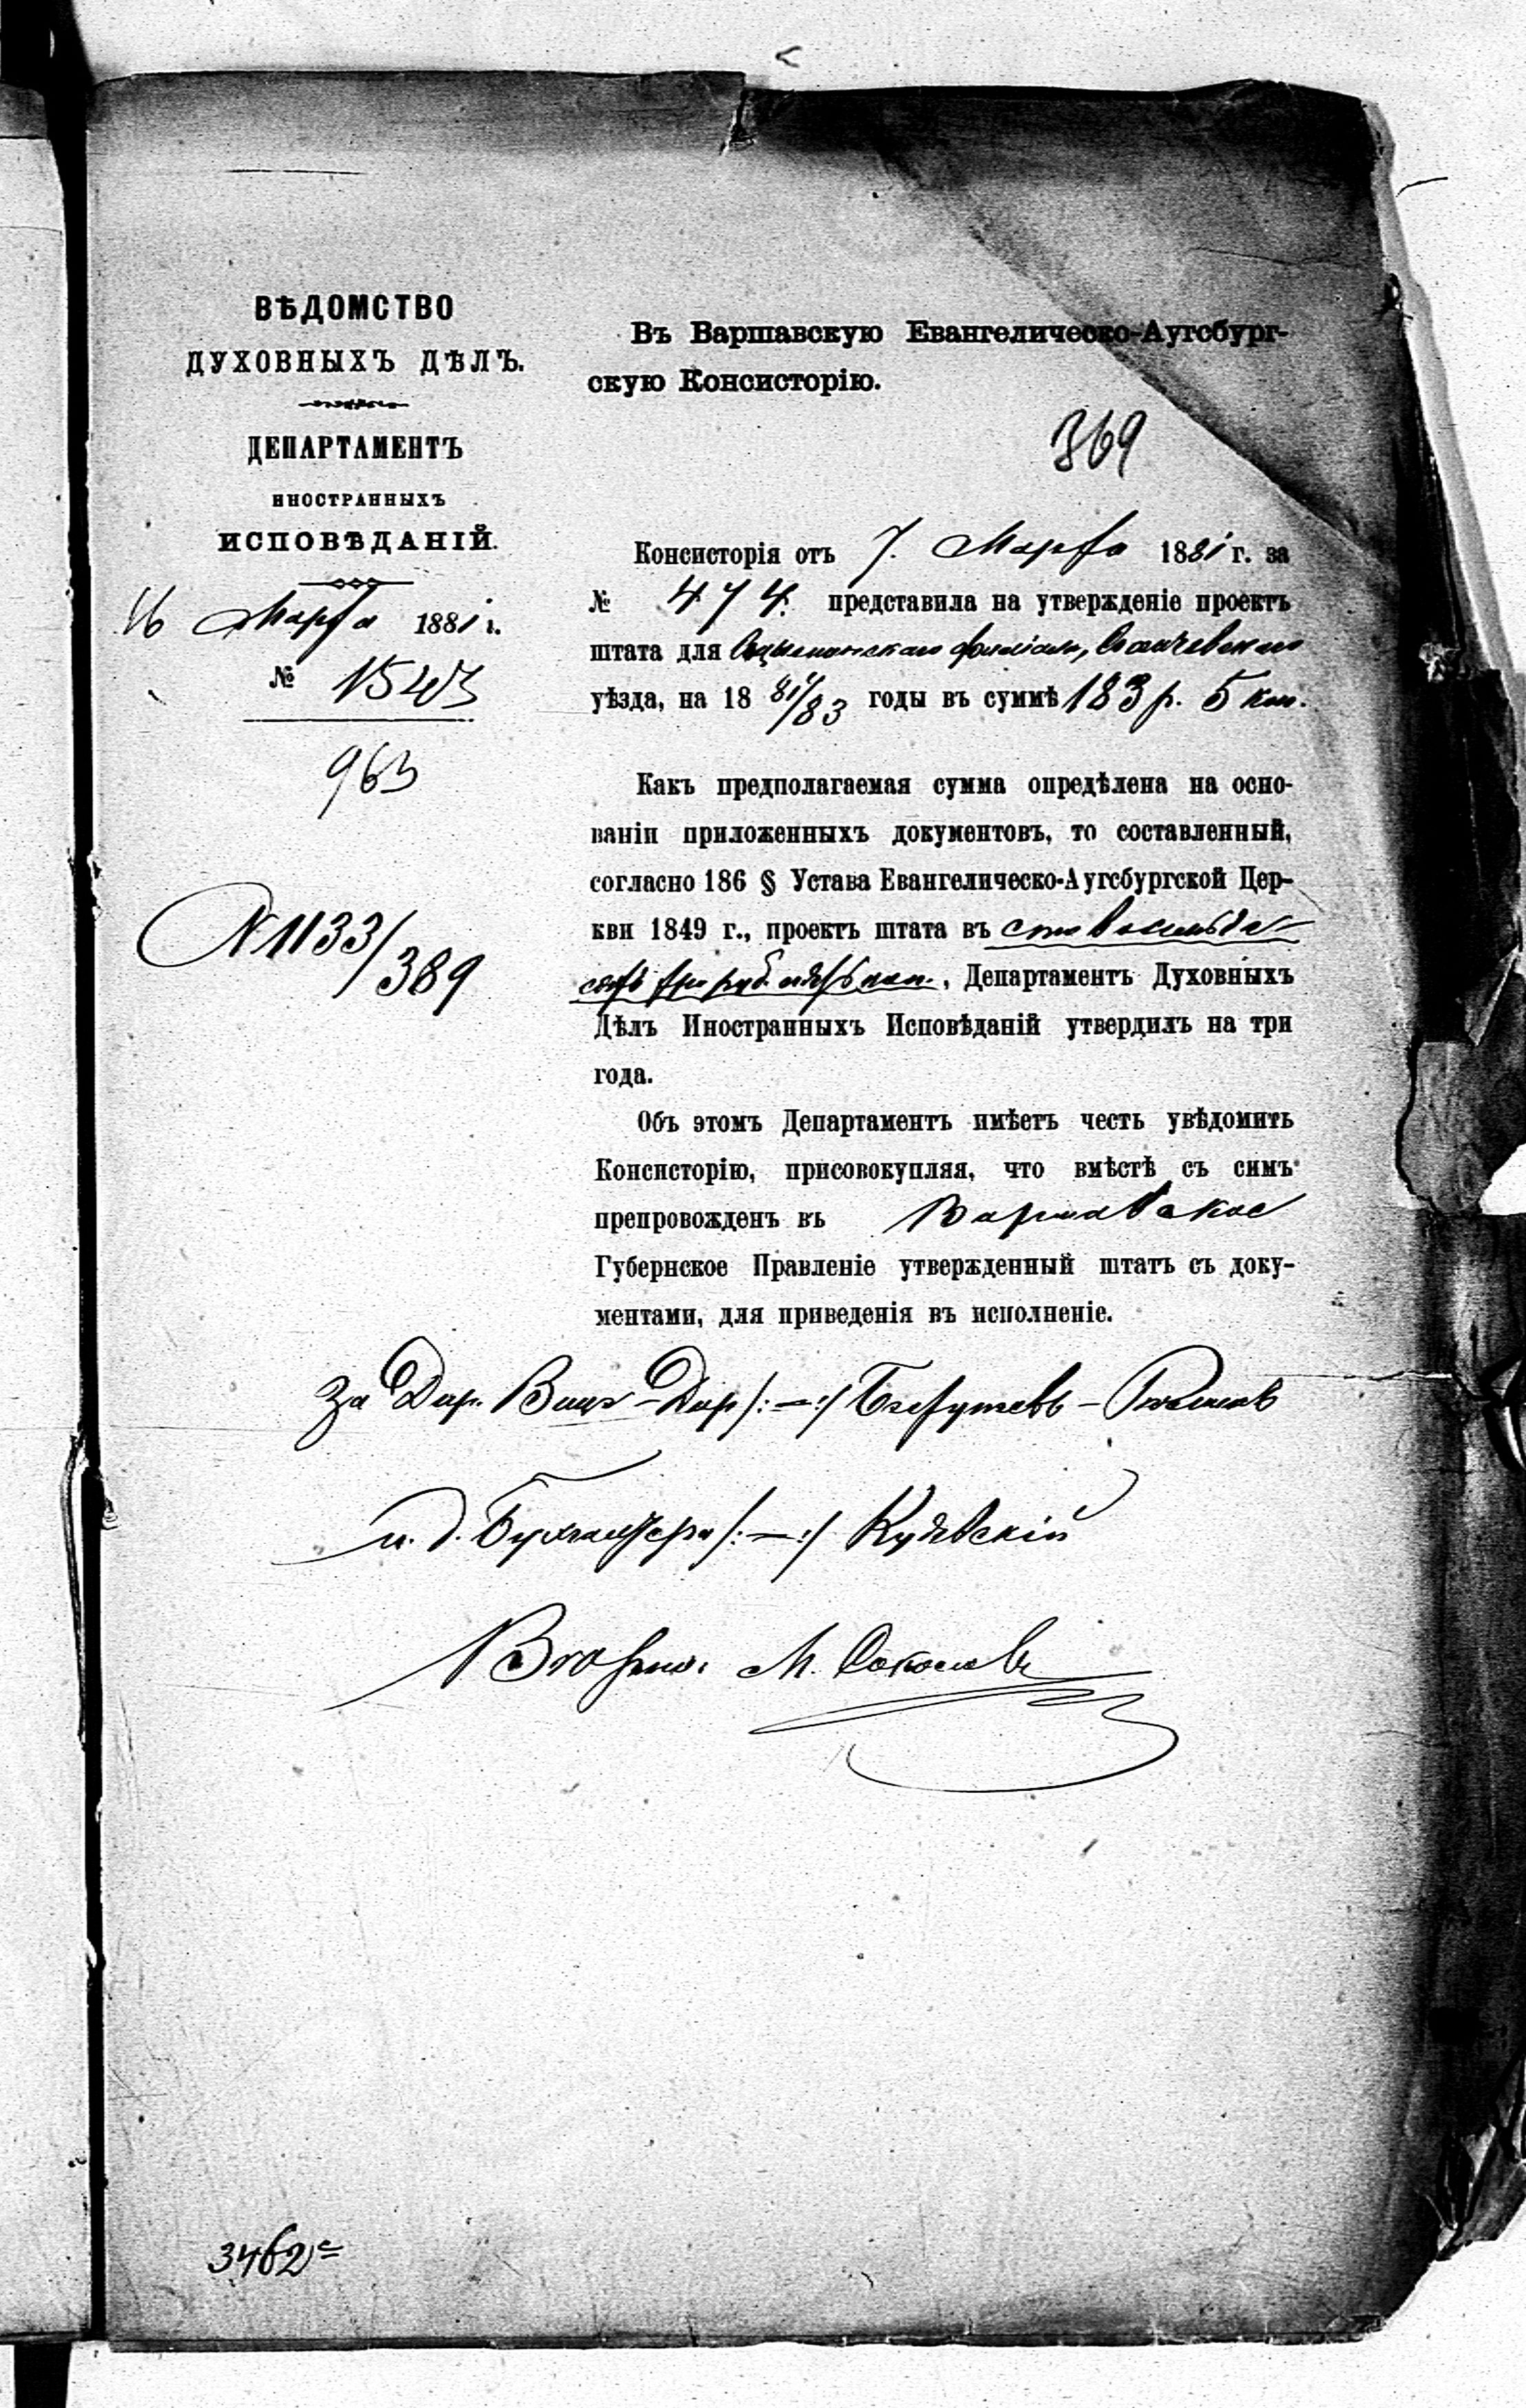 ВѢДОМСТВО
ДУХОВНЫХЪ ДѢЛЪ.
ДЕПАРТАМЕНТЪ
ИНОСТРАННЫХЪ
ИСПОВѢДАНІЙ.
16 Марта 1881 г.
№ 1543
963
N 1133/389
Въ Варшавскую Евангелическо-Аугсбург-
скую Консисторію.
369
Консисторія отъ 7. Марта 1881 г. за
№ 474. представила на утвержденіе проектъ
штата для филіала, Сохачевскаго
уѣзда, на 18 81/83 годы въ суммѣ 183 р. 5 коп.
Какъ предполагаемая сумма опредѣлена на осно-
ваніи приложенныхъ документовъ, то составленный,
согласно 186 § Устава Евангелическо-Аугсбургской Цер-
кви 1849 г., проектъ штата въ сто восемьде-
сятъ три руб. пять коп., Департаментъ Духовныхъ
Дѣлъ Иностранныхъ Исповѣданій утвердилъ на три
года.
Объ этомъ Департаментъ имѣетъ честь увѣдомить
Консисторію, присовокупляя, что вмѣстѣ съ симъ
препровожденъ въ Варшавское
Губернское Правленіе утвержденный штатъ съ доку-
ментами, для приведенія въ исполненіе.
За Дир. Вице-Дир /:—:/
и. д. Бухгалтера /:—:/ Куявскій
М. Соколов
3462